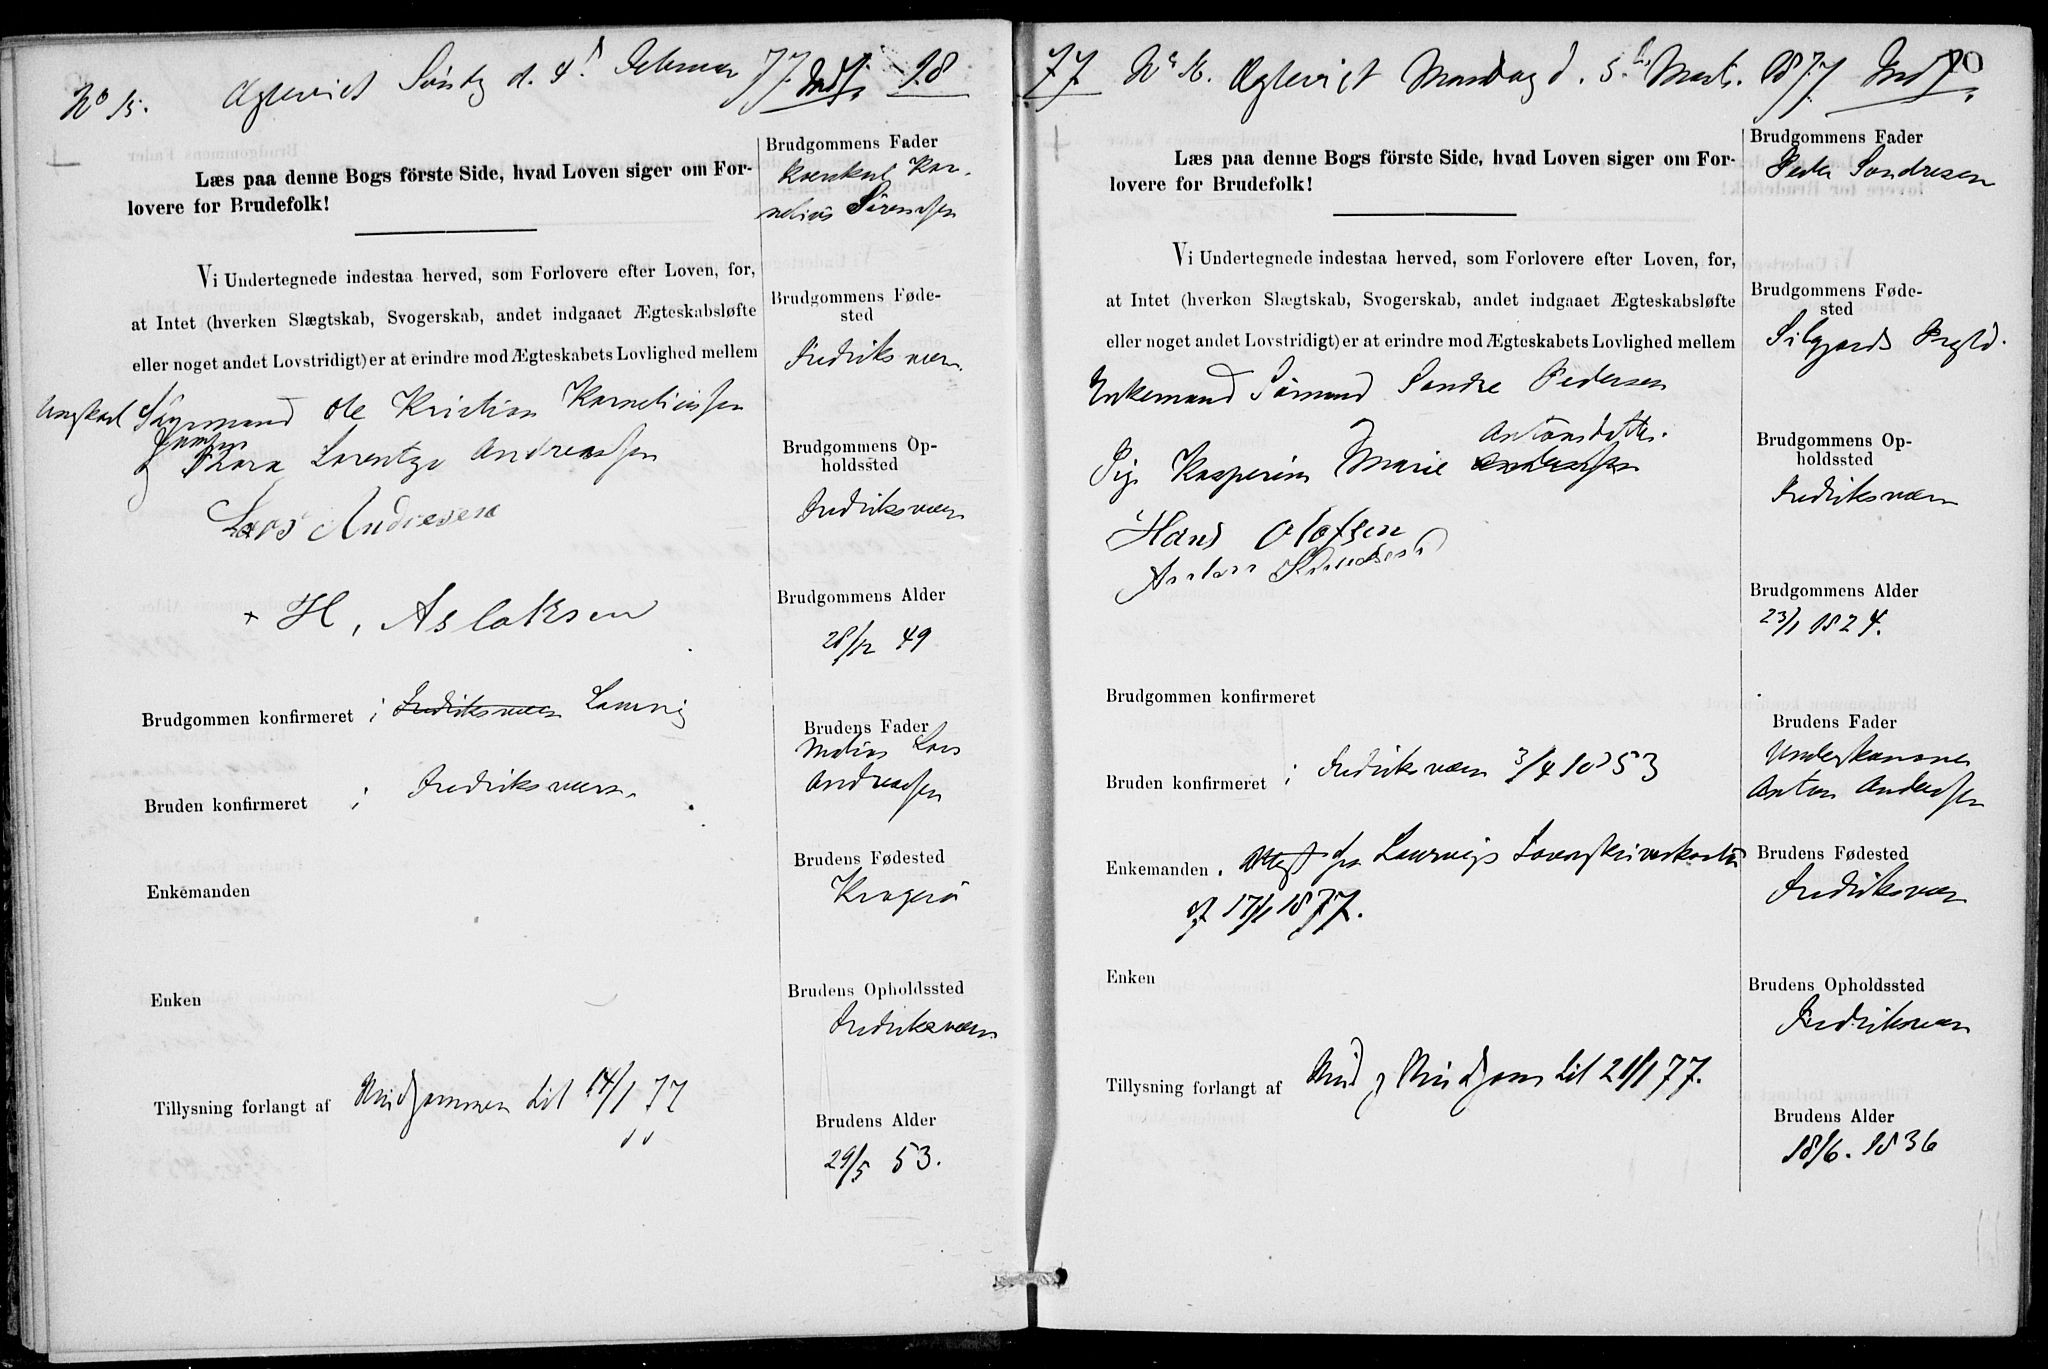 No 15. Ægteviet Søndg d. 4d Februar 77. Indf. 18
Læs paa denne Bogs förste Side, hvad Loven siger om For-
lovere for Brudefolk!
Vi Undertegnede indestaa herved, som Forlovere efter Loven, for,
at Intet (hverken Slægtskab, Svogerskab, andet indgaaet Ægteskabsløfte
eller noget andet Lovstridigt) er at erindre mod Ægteskabets Lovlighed mellem
Ungkarl Ole Kristian Korneliussen
Lorentze Andreassen
Lars Andresen
+ H, Aslaksen
Brudgommen konfirmeret i Fredriksværn Laurvig
Bruden konfirmeret i Fredriksværn.
Enkemanden
Enken
Tillysning forlangt af Brudgommen til 14/1 77
Brudgommens Fader
Kor-
nelius Sörensen
Brudgommens Føde-
sted
Fredriksværn.
Brudgommens Op-
holdssted
Fredriksværn
Brudgommens Alder
28/12 49
Brudens Fader
Lars
Andreassen
Brudens Fødested
Kragerö
Brudens Opholdssted
Fredriksværn
Brudens Alder
29/5 53.
77 Ægteviet Mandag d. 5te Marts. 1877 Indf. 20
Læs paa denne Bogs förste Side, hvad Loven siger om For-
lovere for Brudefolk!
Vi Undertegnede indestaa herved, som Forlovere efter Loven, for,
at Intet (hverken Slægtskab, Svogerskab, andet indgaaet Ægteskabsløfte
eller noget andet Lovstridigt) er at erindre mod Ægteskabets Lovlighed mellem
Enkemand Sömand Sondre Pedersen
Antonsdatter.
Pige Kasperine Marie Anderssen
Hans Olofsen
Brudgommen konfirmeret
Bruden konfirmeret i Fredriksværn 3/4 1853
Enkemanden. Attest fra Laurvigs Sorenskriverkontor
af 17/1 1877.
Enken
Tillysning forlangt af Brud og Brudgom til 21/1 77.
Brudgommens Fader
Peder Sondresen
Brudgommens Føde-
sted
Silgjords Prgld.
Brudgommens Op-
holdssted
Fredriksværn
Brudgommens Alder
23/1 1824.
Brudens Fader
Underkanoner
Anton Anderssen
Brudens Fødested
Fredriksværn
Brudens Opholdssted
Fredriksværn
Brudens Alder
18/6. 1836